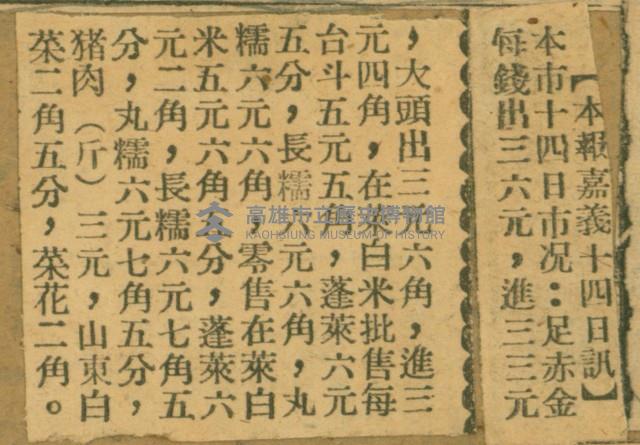 【本報嘉義十四日訊】
本市十四日市況：足赤金
每錢出三六元，進三三元
，大頭出三六角，進三
元四角，在白米批售每
台斗五元五，蓬萊六元
五分，長糯元六角，丸
糯六元六角，零售在萊白
米五元六角五分，蓬萊六
元二角，長糯六元七角五
分，丸糯六元七角五分，
猪肉（斤）三元，山東白
菜二角五分，菜花二角。
高雄市立歷史博物館
KAOHSIUNG MUSEUM OF HISTORY